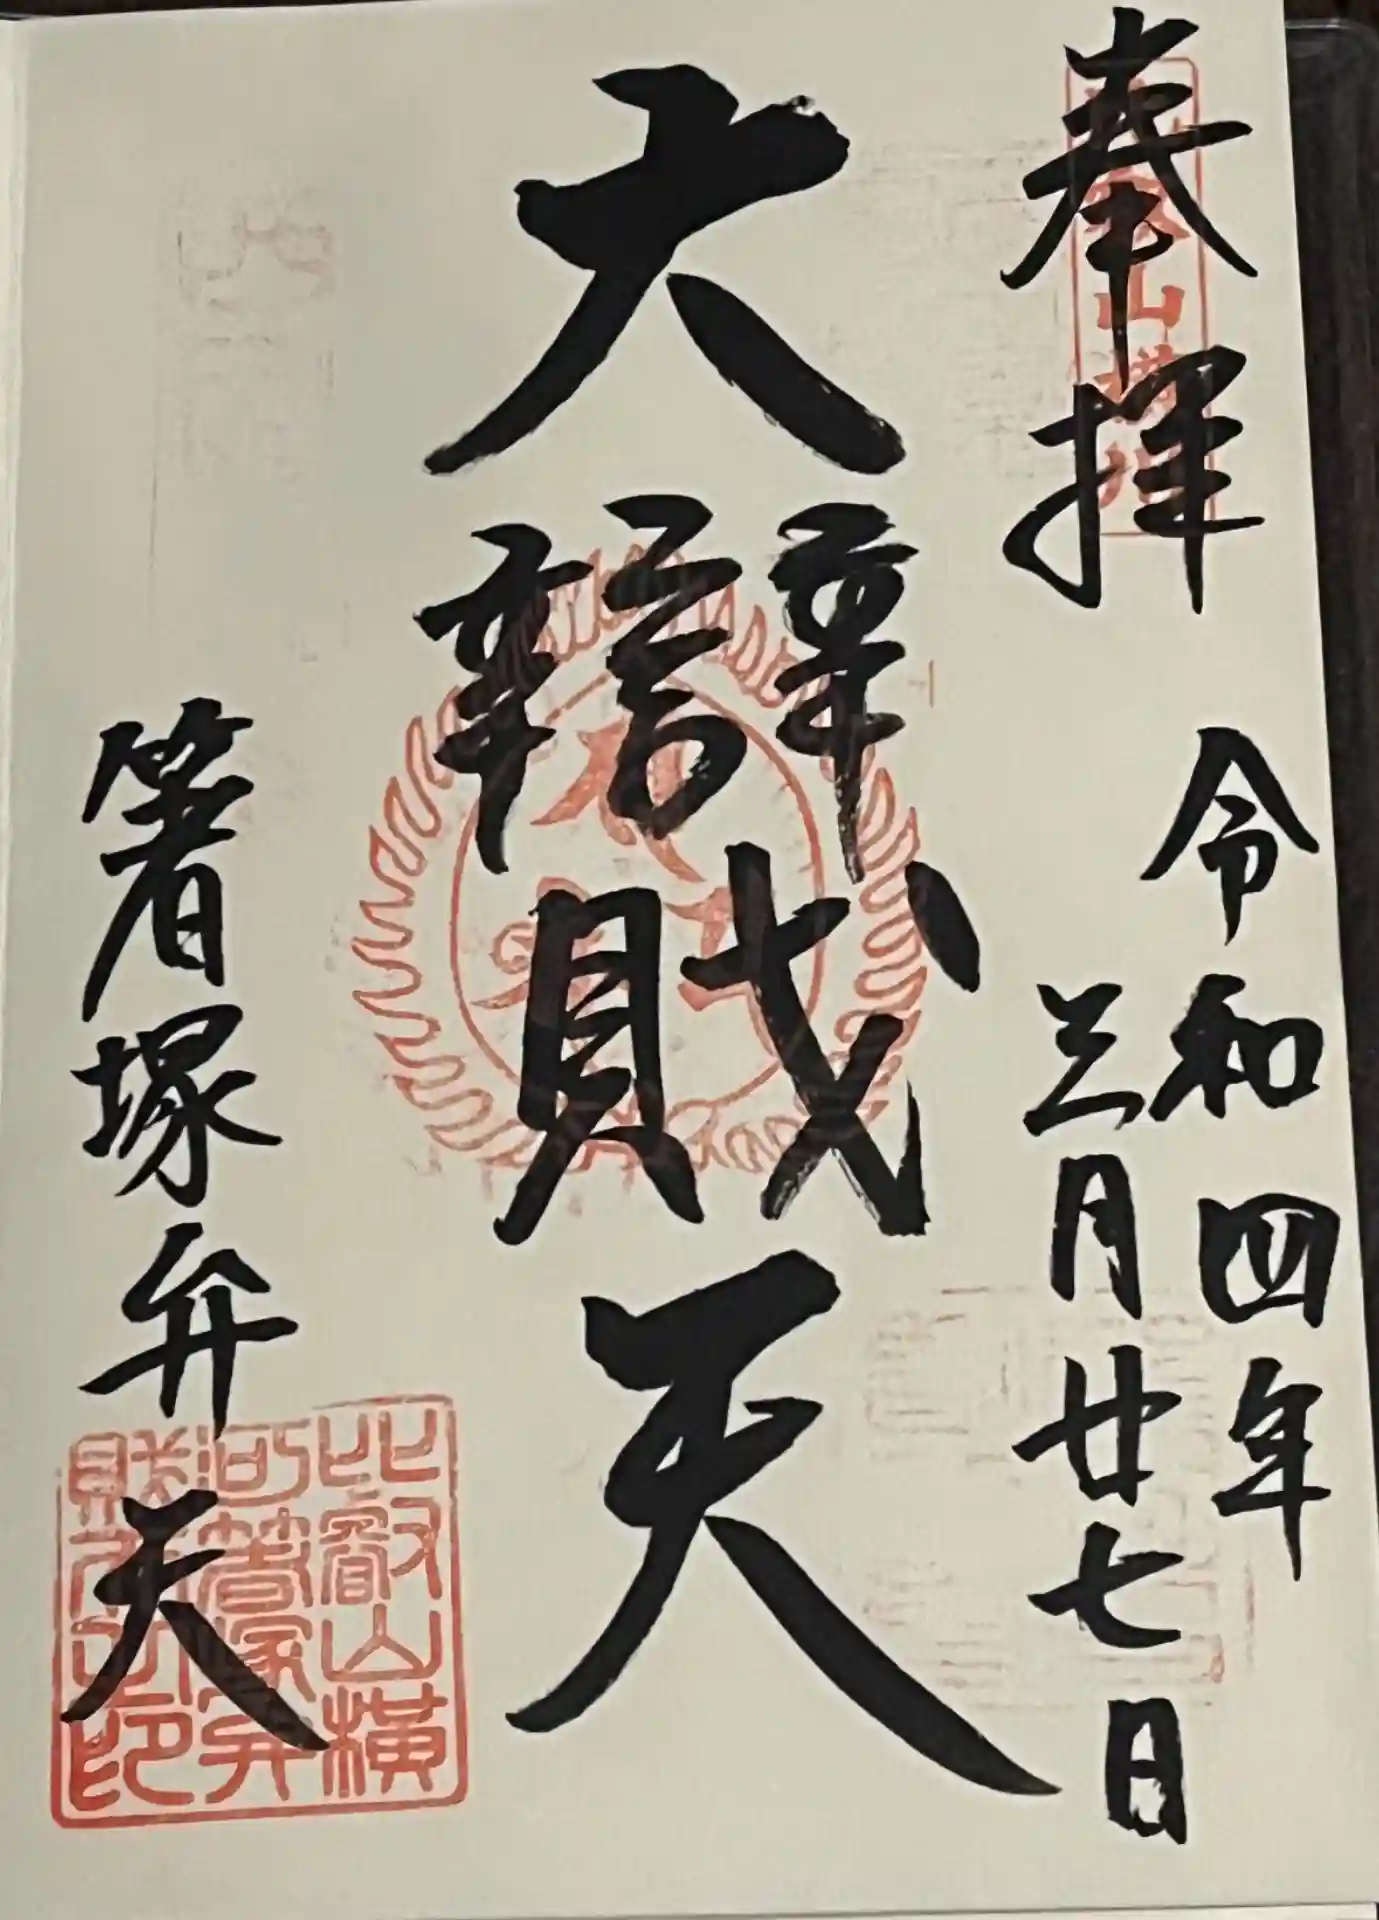 奉拝
令和四年
三月廿七日
大辯財天
箸塚弁天
比叡山横
河箸塚弁